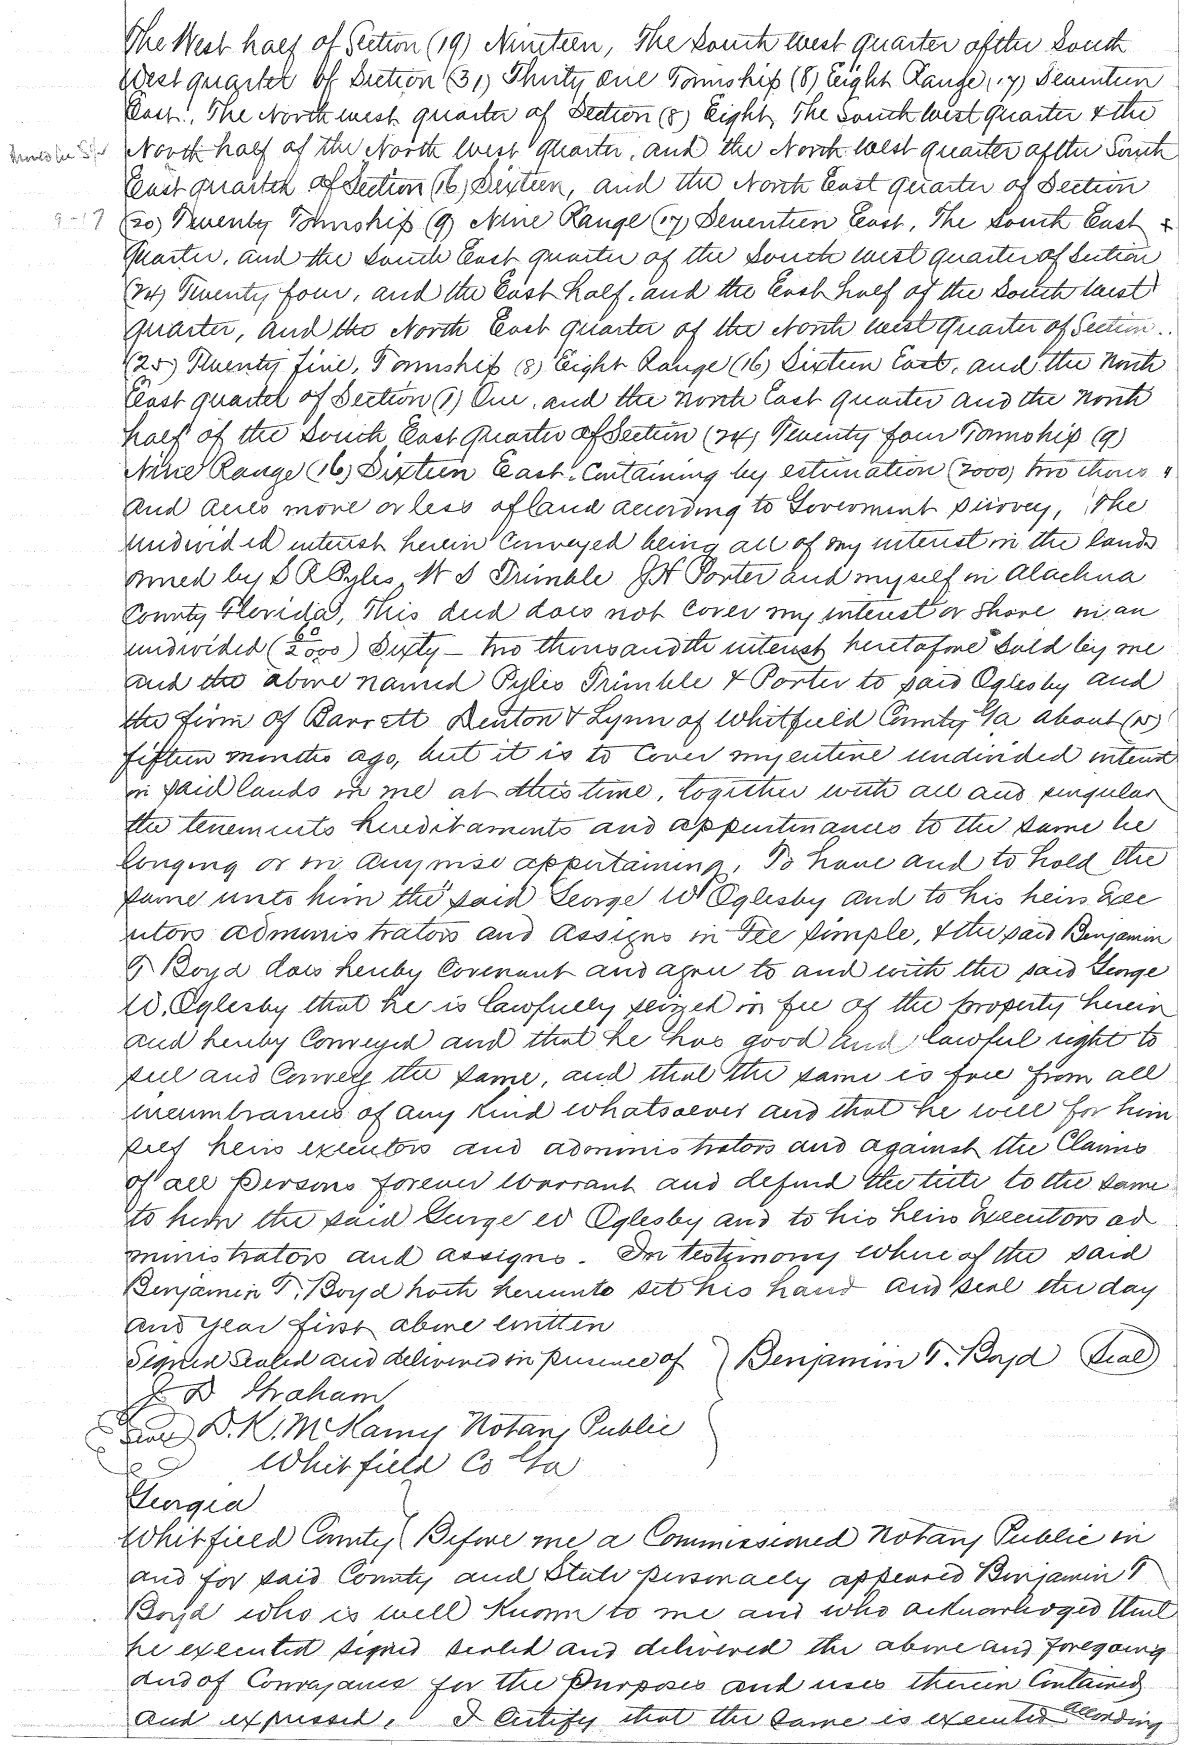 The West half of Section (19) Nineteen, The South west quarter of the South
West quarter of Section (31) Thirty one Township (8) Eight Range (17) Seventeen
East, The North west quarter of Section (8) Eight, The South west quarter & the
North half of the North West quarter, and the North west quarter of the South
East quarter of Section (16) Sixteen, and the North East quarter of Section
9-17
(20) Twenty Township (9) Nine Range (17) Seventeen East, The South East x
Quarter, and the South East quarter of the South west quarter of Section
(24) Twenty four, and the East half, and the East half of the South West
quarter, and the North East quarter of the North west quarter of Section
(25) Twenty five, Township (8) Eight Range (16) Sixteen East, and the North
East quarter of Section (1) One, and the North East quarter and the North
half of the South East Quarter of Section (24) Twenty four Township (9)
Nine Range (16) Sixteen East. Containing by estimation (2000) two thous "
and acres more or less of land according to Goverment survey, The
undivided interest herein Conveyed being all of my interest in the lands
owned by S R Pyles, W S Trimble J H Porter and myself in Alachua
County Florida, This deed does not cover my interest or share in an
undivided (60/2000) Sixty - two thousandth interest heretofore sold by me
and the above named Pyles Trimble & Porter to said Oglesby and
the firm of Barrett Denton & Lynn of Whitfield County Ga about (15)
fifteen months ago, but it is to cover my entire undivided interest
in said lands in me at this time, together with all and singular
the tenements hereditaments and appurtinances to the same be
longing or in anywise appertaining, To have and to hold the
same unto him the said George W Oglesby and to his heirs Exec
utors administrators and assigns in Fee simple, & the said Benjamin
T Boyd does hereby Covenant and agree to and with the said George
W. Oglesby that he is lawfully seized in fee of the property herein
and hereby Conveyed and that he has good and lawful right to
sell and Convey the same, and that the same is free from all
incumbrances of any kind whatsoever and that he will for him
self heirs executors and administrators and against the Claims
of all persons forever warrant and defend the title to the same
to him the said George W Oglesby and to his heirs Executors ad
ministrators and assigns. In testimony where of the said
Benjamin T. Boyd hath hereunto set his hand and seal the day
and year first above written
Signed Sealed and delivered in presence of } Benjamin T. Boyd (Seal)
J D Graham
(Seal) D. K. McKamy Notary Public
Whitfield Co Ga
Georgia
Whitfield County } Before me a Commissioned Notary Public in
and for said County and State personally appeared Benjamin T
Boyd who is well known to me and who acknowledged that
he executed signed sealed and delivered the above and foregoing
deed of Conveyance for the purposes and uses therein Contained
and expressed. I Certify that the same is executed according